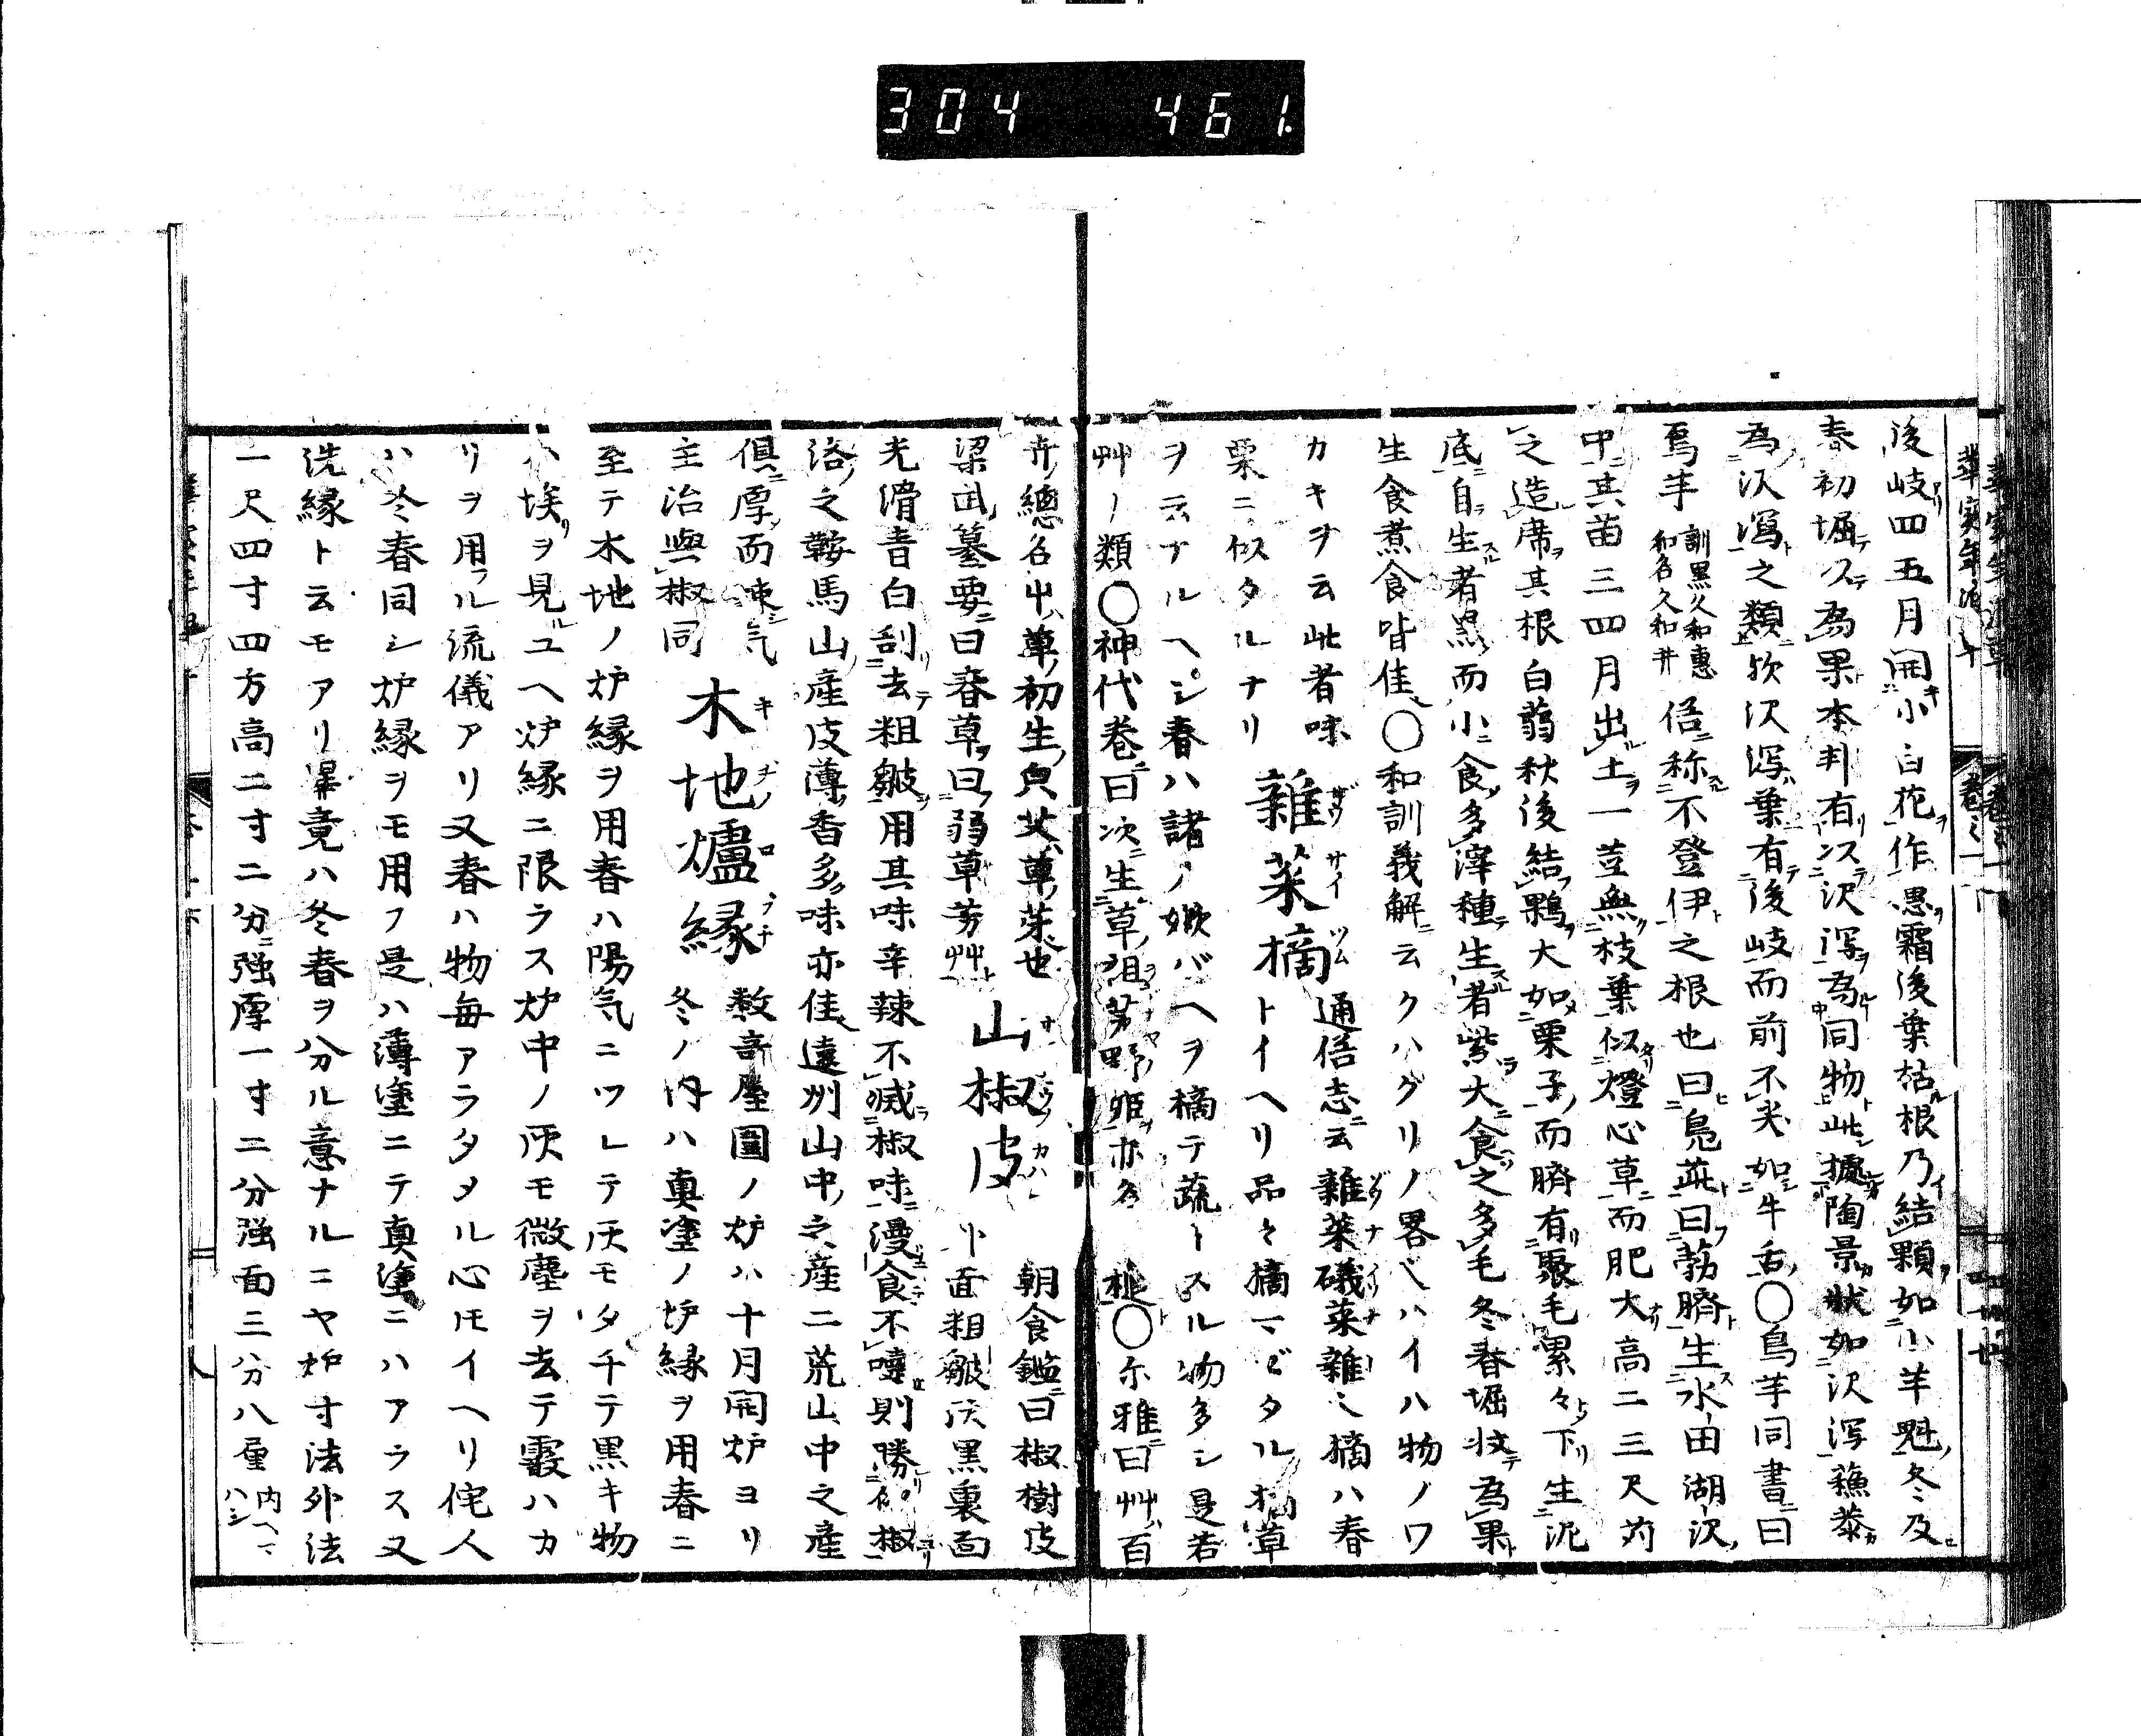 304 461
後岐四五月開小白花作叢霜後葉枯根乃結顆如小芋魁冬及
春初堀乄為果本邦有以沢瀉為同物此拠陶景状如沢瀉蘓恭
為沢瀉之類欤沢瀉葉有後岐而前不尖如牛舌〇烏芋同書曰
烏芋
訓黒久和惠
和名久和井
俗称不登伊之根也曰鳬茈曰葧臍生水田湖沢
中其苗三四月出土一茎無枝葉似燈心草而肥大高二三尺苅
之造席其根白蒻秋後結顆大如栗子而臍有聚毛累々下生泥
底自生者黒而小食多滓種生者紫大食之多毛冬春堀収為果
生食煮食皆佳〇和訓義解云クハグリノ畧ベハイハ物ノワ
カキヲ云此者味
栗ニ似タルナリ
雑菜摘
ザウサイツム
通俗志云雑菜磯菜雑々摘ハ春
トイヘリ品々摘マゼタル摘草
ヲ云ナルヘシ春ハ諸ノ嫰バヘヲ摘テ蔬トスル物多シ是若
艸ノ類〇神代巻曰次生草祖草野姫亦名
〇尓雅曰艸百
卉総名屮草初生與艾草菜也
山椒皮
サンセウノカハ
朝食鑑曰椒樹皮
外面粗皺灰黒裏面
光滑青白刮去粗皺用其味辛辣不減椒味漫食不嚏則勝食椒
洛之鞍馬山産皮薄香多味亦佳遠州山中之産二荒山中之産
倶厚而
主治與椒同
木地爐縁
キヂノロブチ
数奇屋圍ノ炉ハ十月開炉ヨリ
冬ノ内ハ真塗ノ炉縁ヲ用春ニ
至テ木地ノ炉縁ヲ用春ハ陽気ニツレテ灰モタチテ黒キ物
ハ埃リヲ見ユヘ炉縁ニ限ラス炉中ノ灰モ微塵ヲ去テ霰ハカ
リヲ用ル流儀アリ又春ハ物毎アラタメル心モイヘリ侘人
ハ冬春同シ炉縁ヲモ用フ是ハ薄塗ニテ真塗ニハアラス又
洗縁ト云モアリ畢竟ハ冬春ヲ分ル意ナルニヤ炉寸法外法
一尺四寸四方高二寸二分強厚一寸二分強面三分八厘